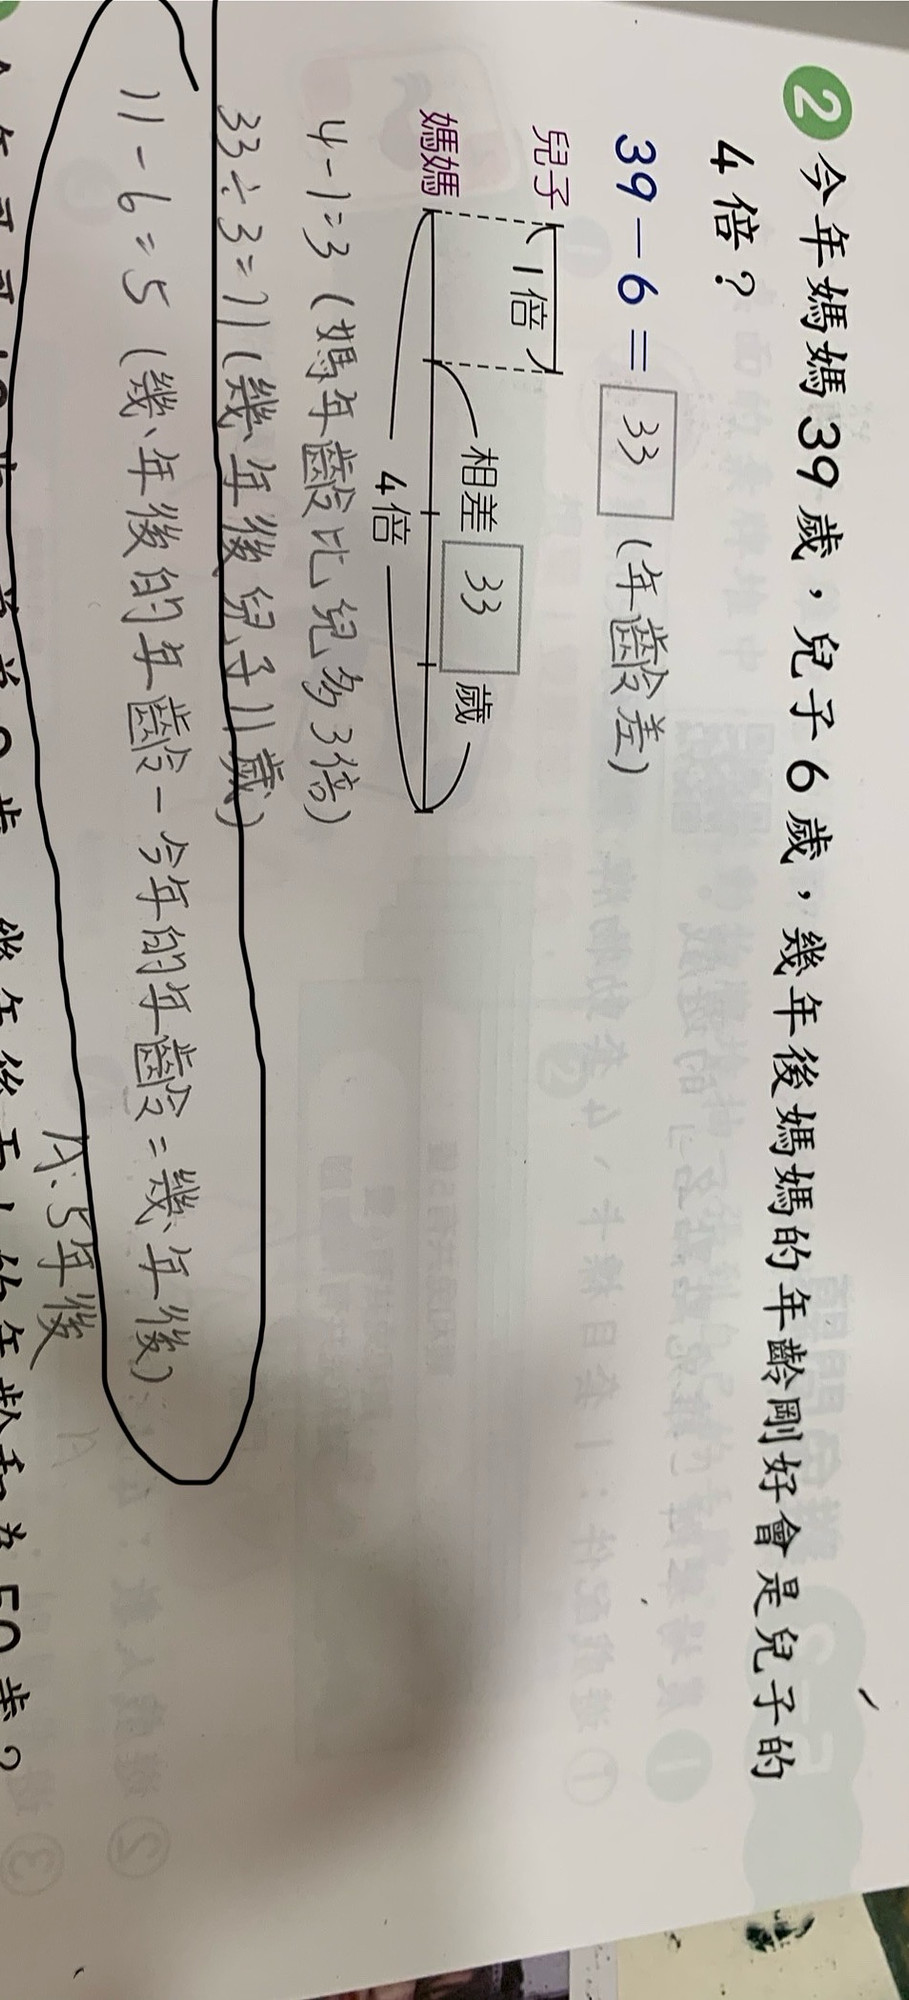 2 今年媽媽39歲，兒子6歲，幾年後媽媽的年齡剛好會是兒子的
4倍？
39－6＝33（年齡差）
兒子 1倍
相差33歲
媽媽
4倍
4-1=3（媽年齡比兒多3倍）
33÷3=11（幾年後兒子11歲）
11-6=5（幾年後的年齡-今年的年齡=幾年後）
A:5年後
幾年後
年齡和為50歲？